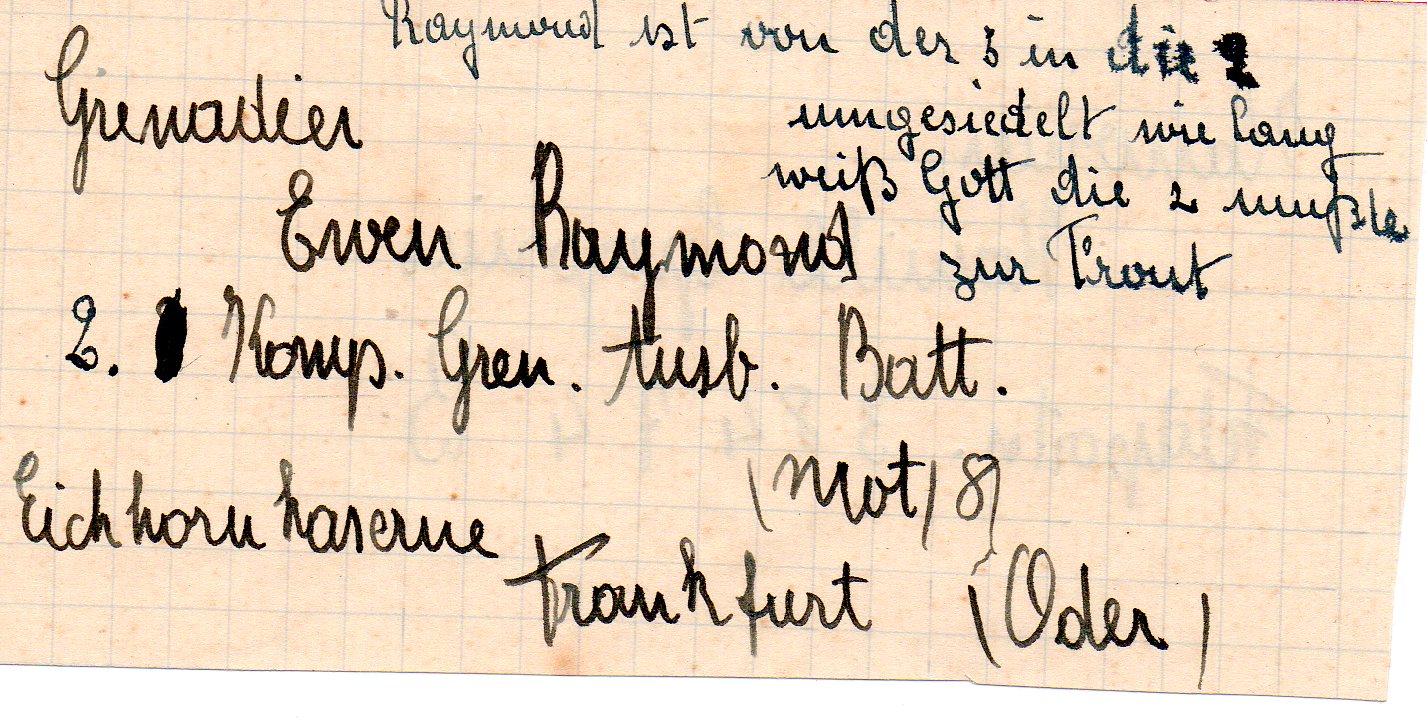 Raymond ist von der 3 in die 2
umgesiedelt wie lang
weiß Gott die 2 mußte
zur Front
Grenadier
Ewen Raymond
2. Komp. Gren. Ausb. Batt.
(Mot) 8)
Eichhornkaserne
Frankfurt (Oder)